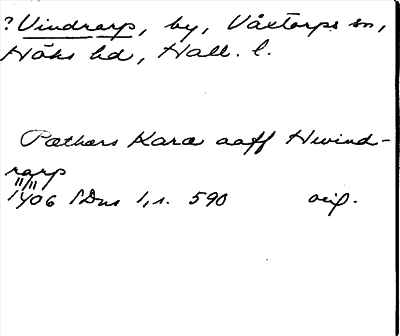 ? Vindrarp, by, Våxtorps sn,
Höks hd, Hall. l.
Pæthars Kara aaff Hwind-
rarp
11/11
1406 SDns 1, s. 590 orig.